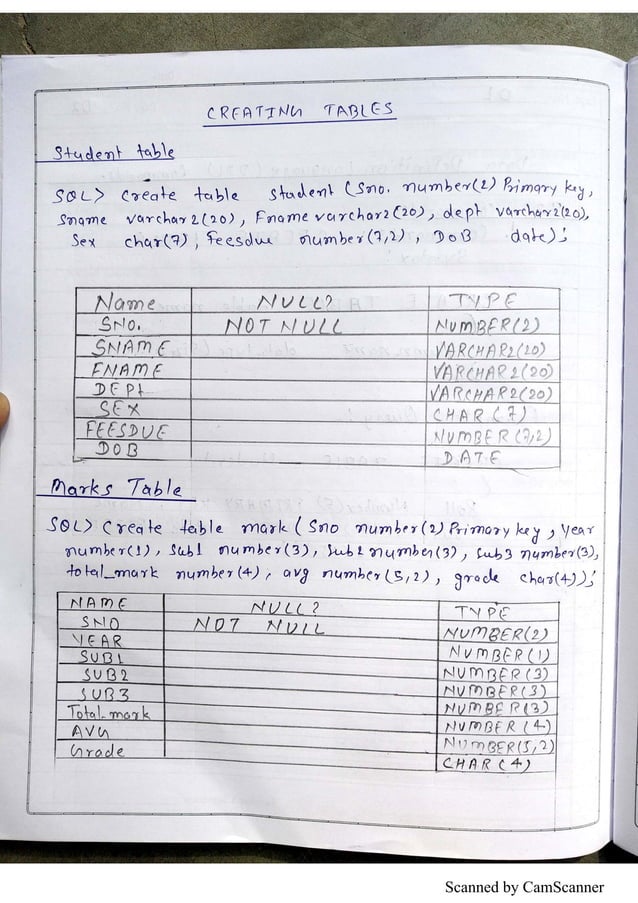 CREATING TABLES
Student table
SQL> Create table student (Sno. number(2) Primary key,
Sname varchar2(20), Fname varchar2(20), dept varchar2(20),
Sex char(7), Feesdue number(7,2), DoB date);
Name NULL? TYPE
SNO. NOT NULL NUMBER(2)
SNAME VARCHAR2(20)
FNAME VARCHAR2(20)
DEPt VARCHAR2(20)
SEX CHAR(7)
FEESDUE NUMBER(7,2)
DOB DATE
Marks Table
SQL> Create table mark (Sno number(2) Primary key, Year
number(1), Sub1 number(3), Sub2 number(3), Sub3 number(3),
total_mark number(4), avg number(5,2), grade char(4));
NAME NULL? TYPE
SNO NOT NULL NUMBER(2)
YEAR NUMBER(1)
SUB1 NUMBER(3)
SUB2 NUMBER(3)
SUB3 NUMBER(3)
Total_mark NUMBER(4)
AVG NUMBER(5,2)
Grade CHAR(4)
Scanned by CamScanner